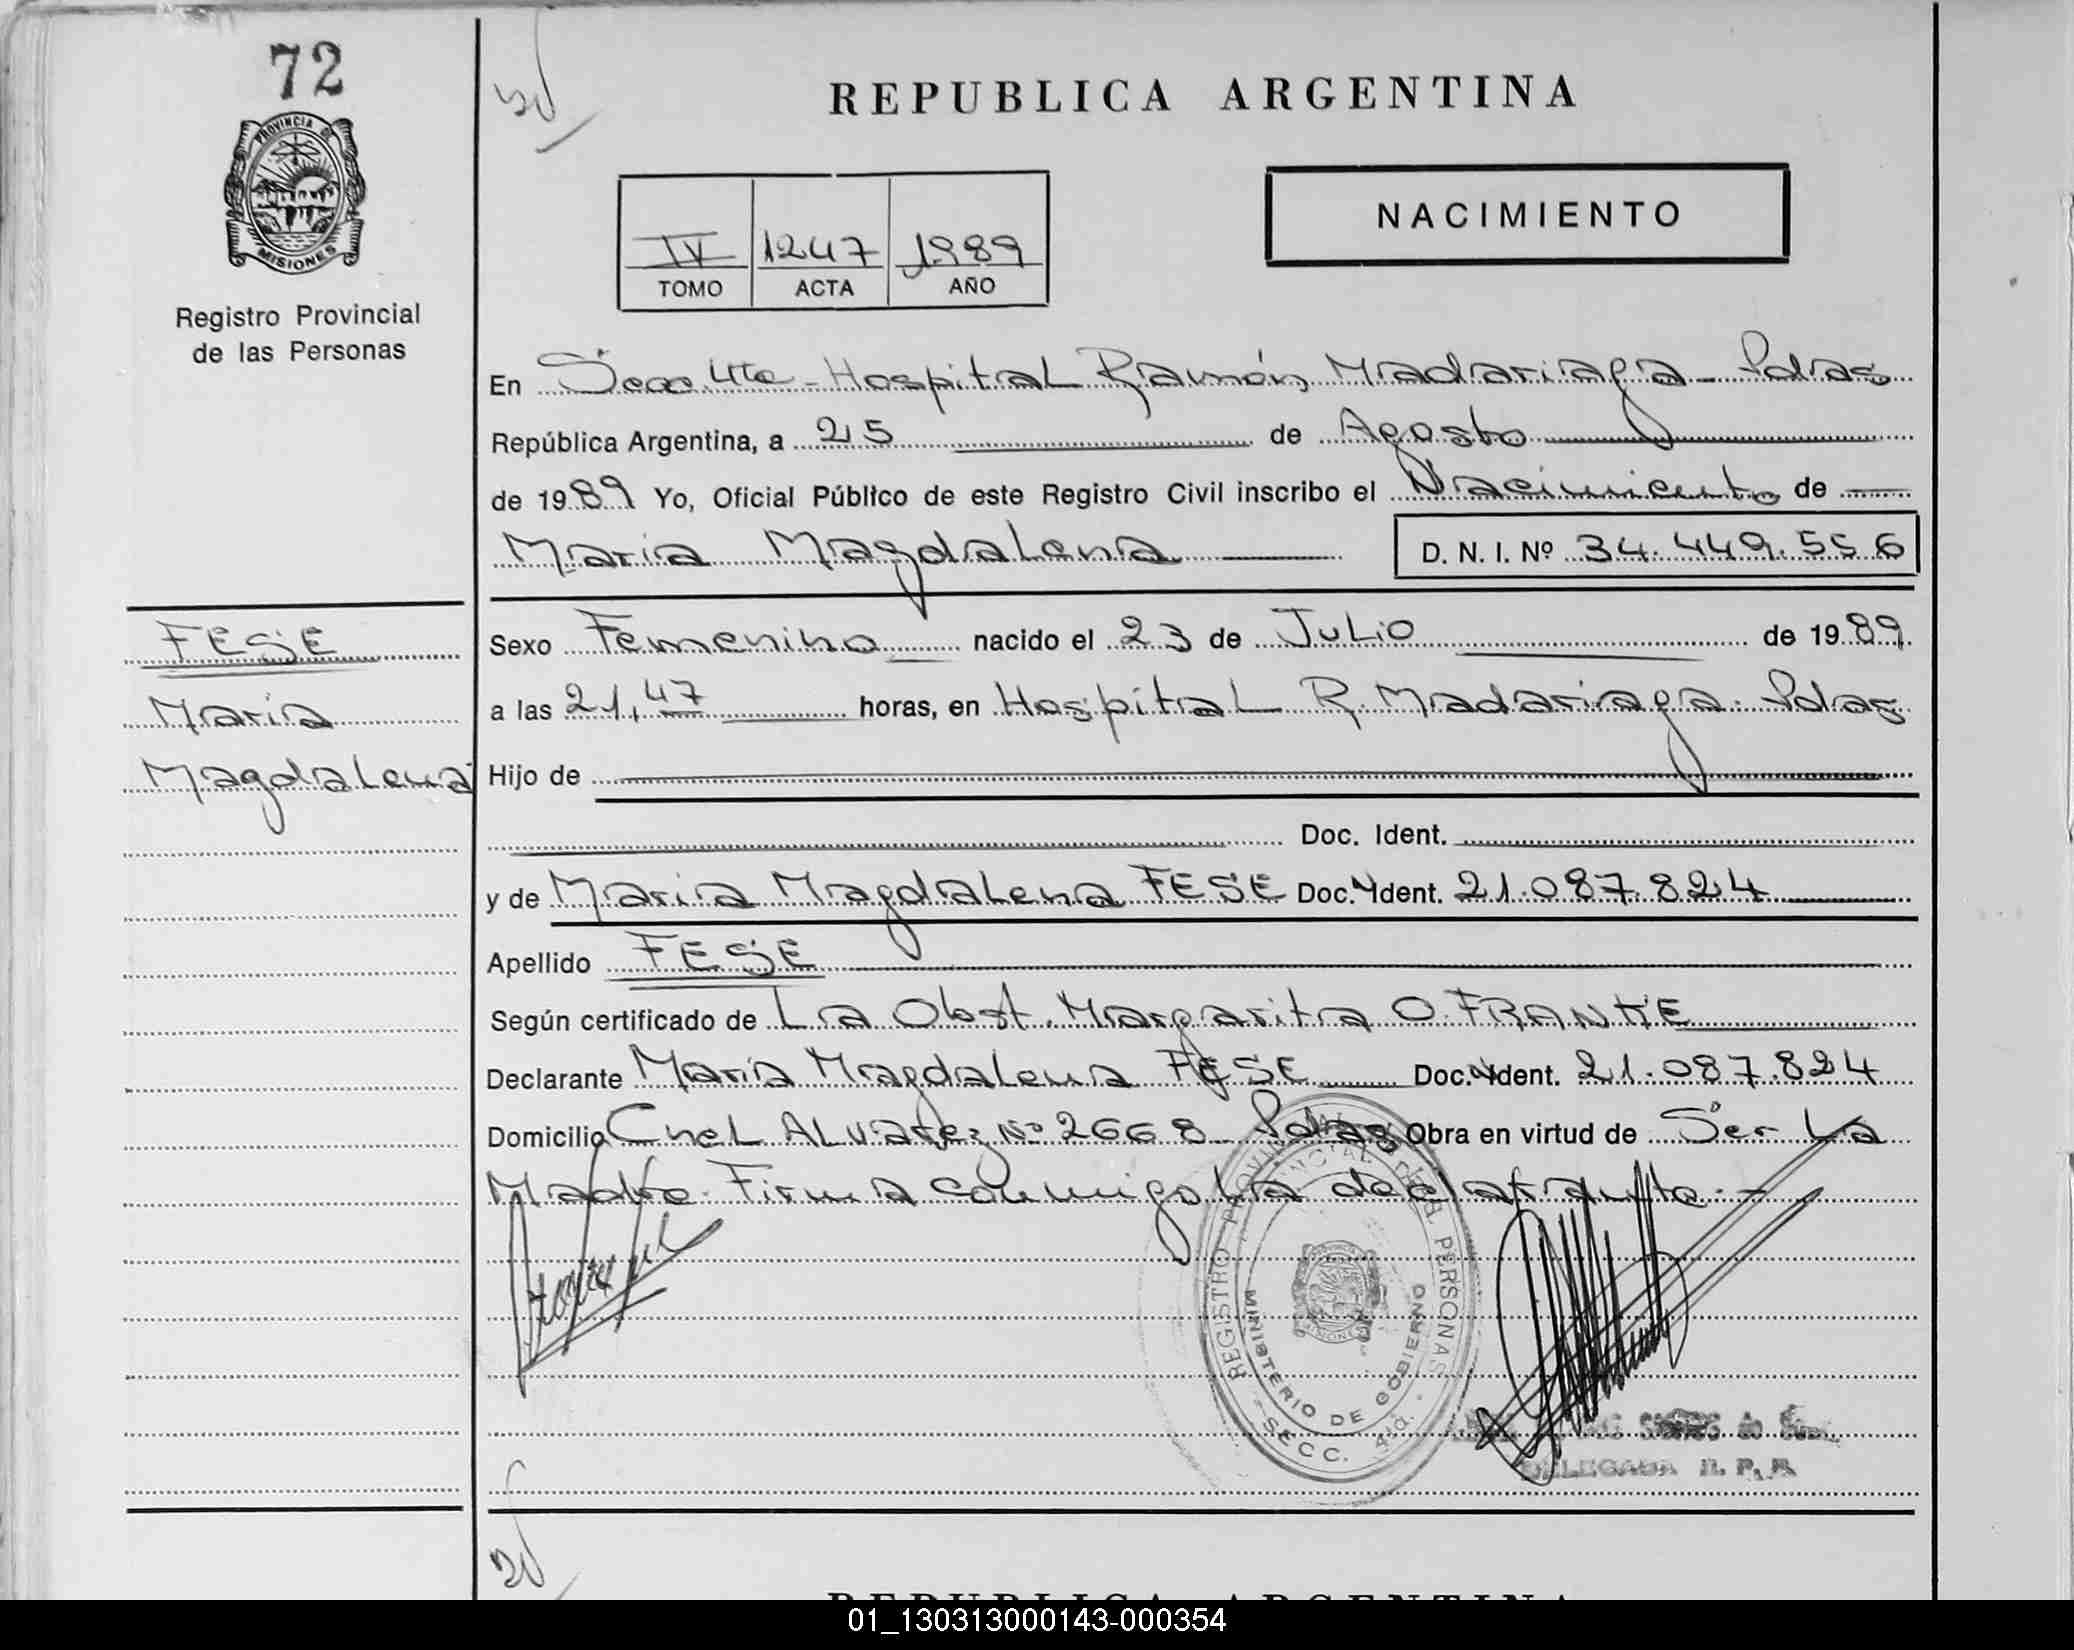 72
PROVINCIA DE
MISIONES
Registro Provincial
de las Personas
REPUBLICA ARGENTINA
NACIMIENTO
IV 1247 1989
TOMO ACTA AÑO
En Secc. 4ta - Hospital Ramón Madariaga - Pdas
República Argentina, a 25 de Agosto
de 1989 Yo, Oficial Público de este Registro Civil inscribo el Nacimiento de
María Magdalena D. N. I. Nº 34.449.556
FESE
María
Magdalena
Sexo Femenino nacido el 23 de Julio de 1989
a las 21,47 horas, en Hospital R. Madariaga. Pdas
Hijo de
Doc. Ident.
y de María Magdalena FESE Doc. Ident. 21.087.824
Apellido FESE
Según certificado de La Obst. Margarita O. FRANKE
Declarante María Magdalena FESE Doc. Ident. 21.087.824
Domicilio Cnel Alvarez Nº 2668 Pdas Obra en virtud de Ser La
Madre. Firma conmigo la declarante.-
REGISTRO PROVINCIAL DE LAS PERSONAS
MINISTERIO DE GOBIERNO
SECC. 4ta.
DELEGADA R. P. P.
REPUBLICA ARGENTINA
01_130313000143-000354